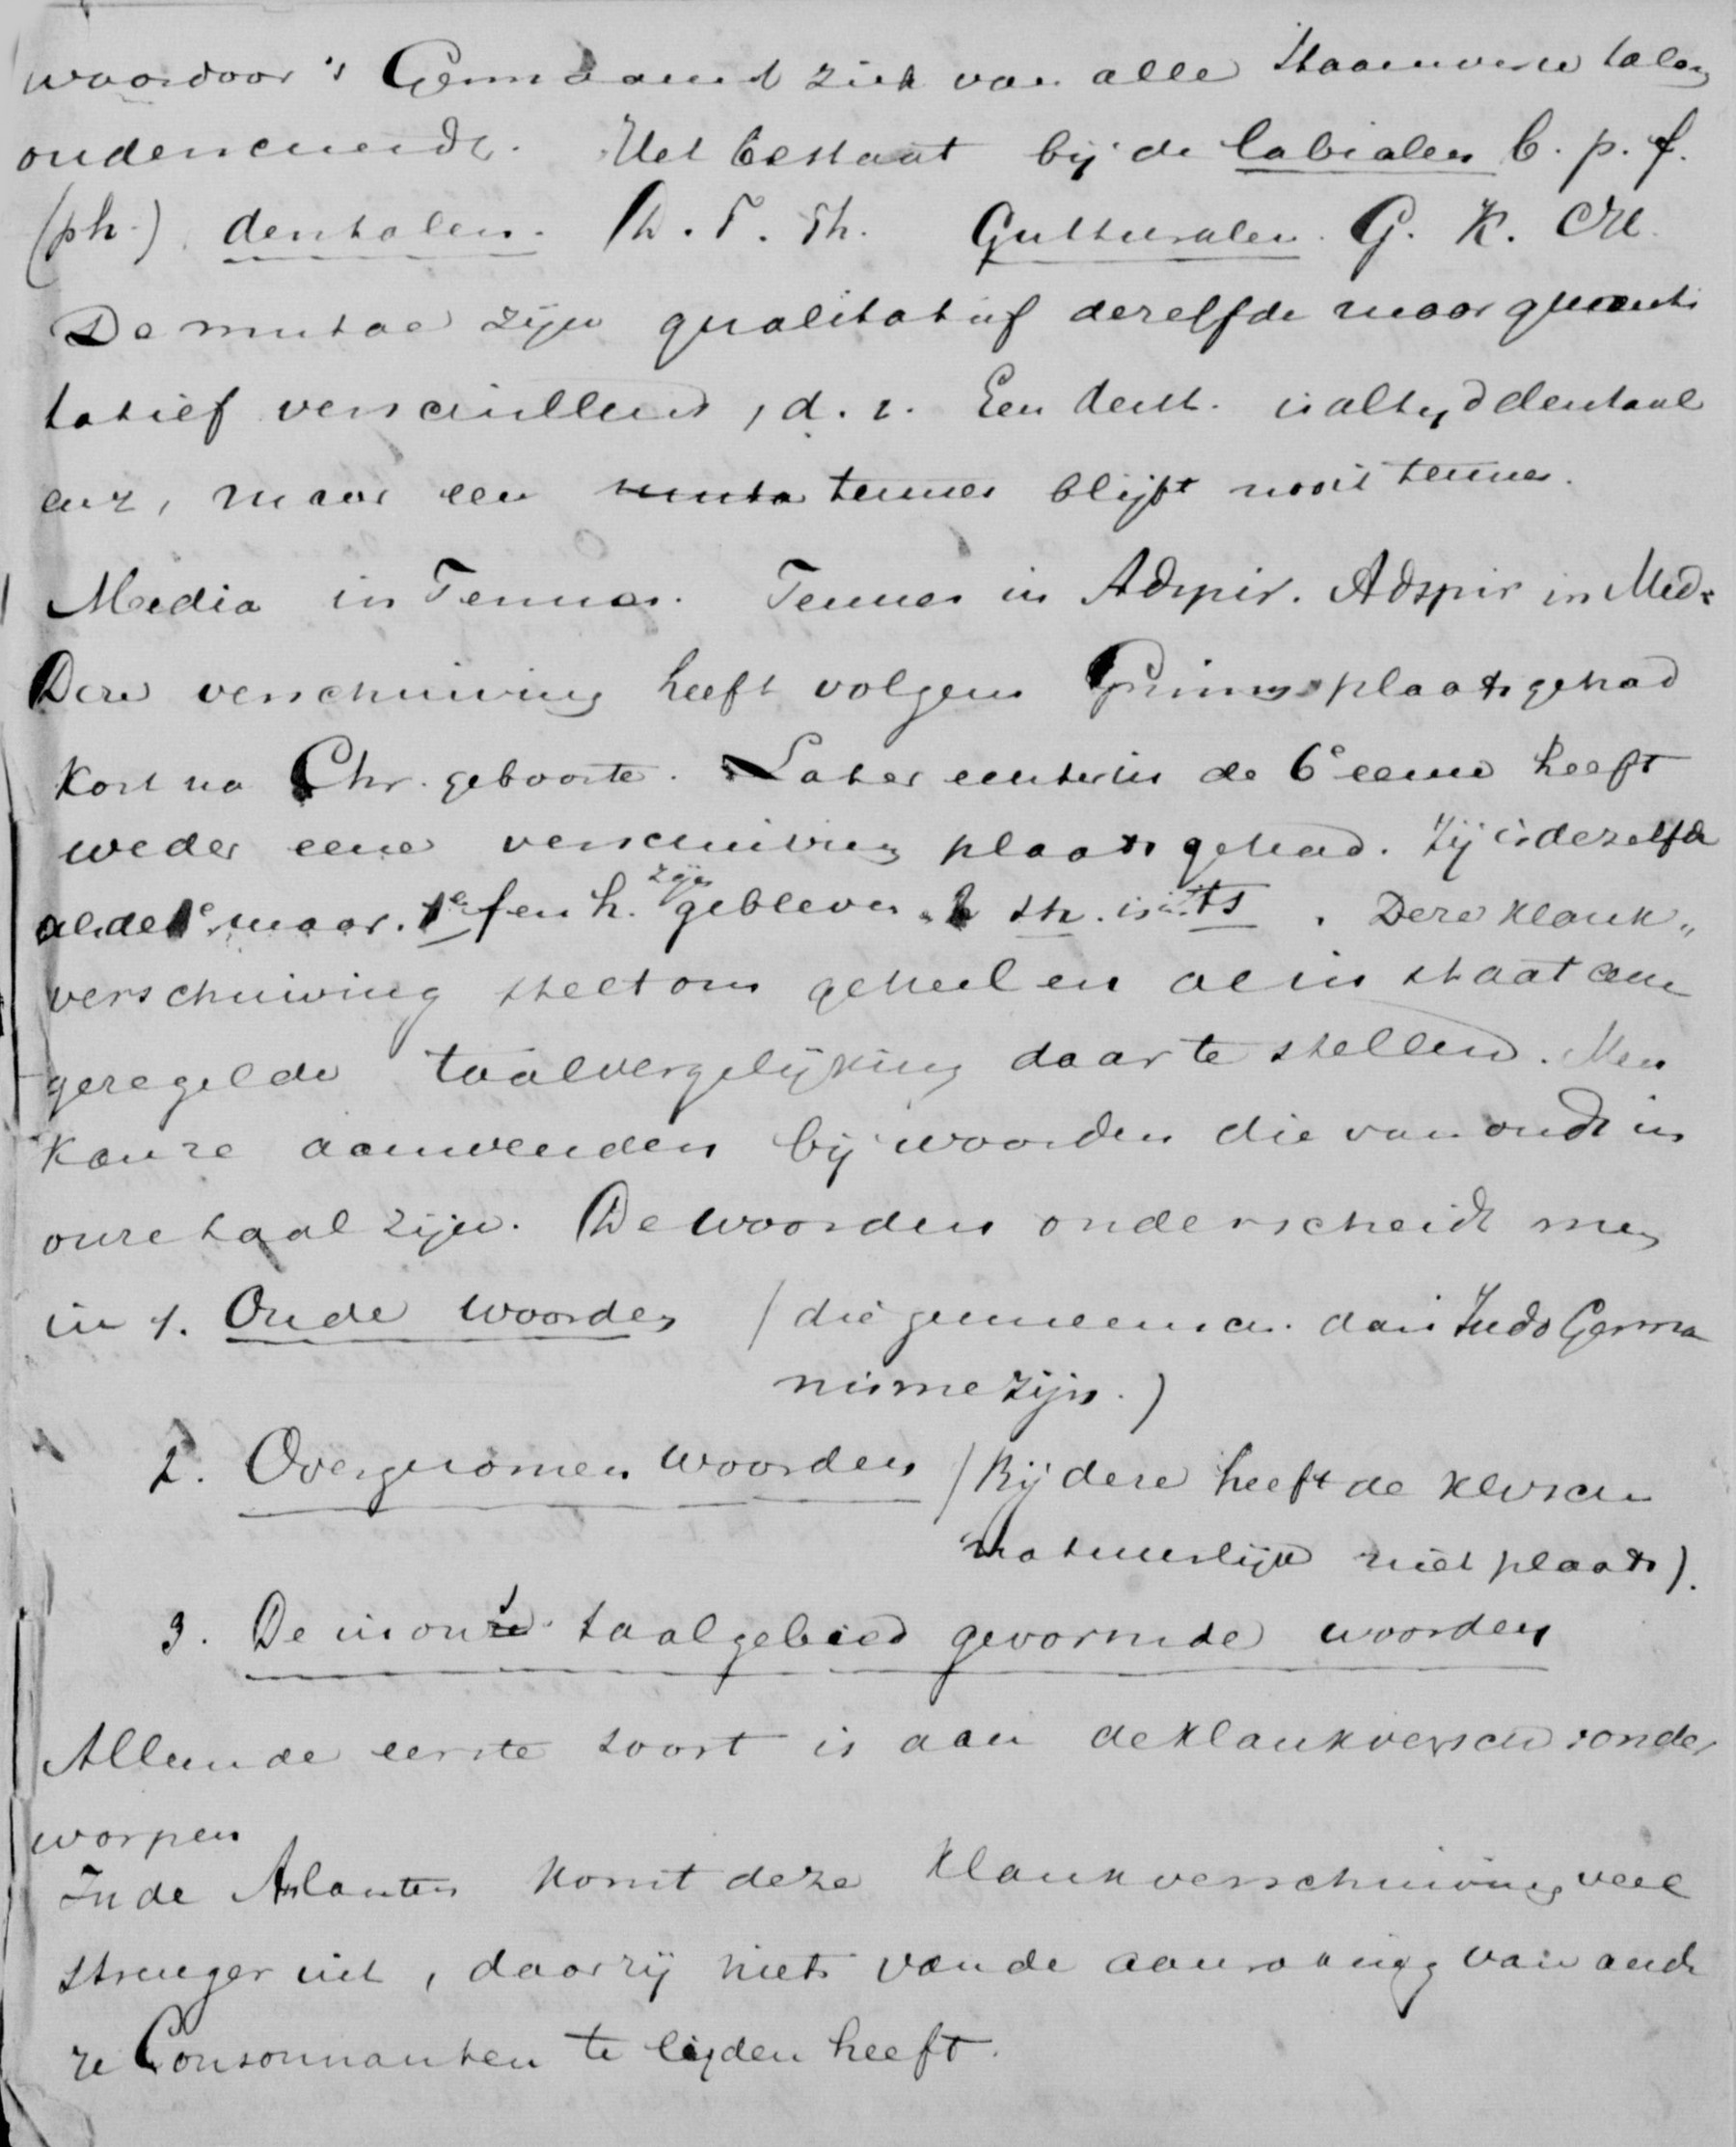 waardoor 't Germaansch zich van alle Stamverw talen
onderscheidt. Het bestaat bij de labialen b. p. f.
(ph.) dentalen. D. T. Th. Gutturalen. G. K. CH.
De mutae zijn qualitatief dezelfde maar quanti
tatief verschillend, d. i. Een dent. is altijd dentaal
enz, maar een muta tenues blijft nooit tenues.
Media in Tenues. Tenues in Adspir. Adspir in Med.
Deze verschuiving heeft volgens Grimm plaats gehad
Kort na Chr. geboorte. Later echter in de 6e eeuw heeft
weder eene verschuiving plaats gehad. Zij is dezelfde
als de 1e maar. 1e f en h. zijn gebleven th. is ts. Deze klank„
verschuiving stelt ons geheel en al in staat eene
geregelde taalvergelijking daar te stellen. Men
kan ze aanwenden bij woorden die van oudt in
onze taal zijn. De woorden onderscheidt men
in 1. Oude woorden (die gemeensch. aan Indo Germa
nisme zijn.)
2. Overgenomen woorden (Bij deze heeft de klversch
natuurlijk niet plaats).
3. De in ons taalgebied gevormde woorden
Alleen de eerste soort is aan de klankversch onder
worpen
In de Anlauten komt deze klankverschuiving veel
strenger uit, daar zij niets van de aanraking van ande
re Consonnanten te lijden heeft.